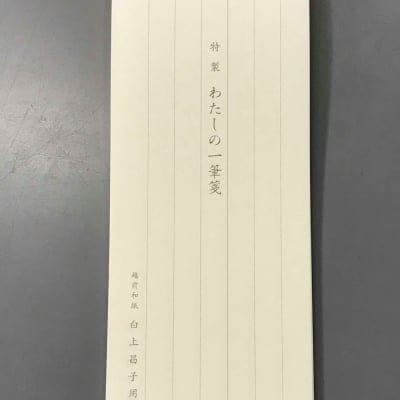 特製 わたしの一筆箋
越前和紙 白上昌子用